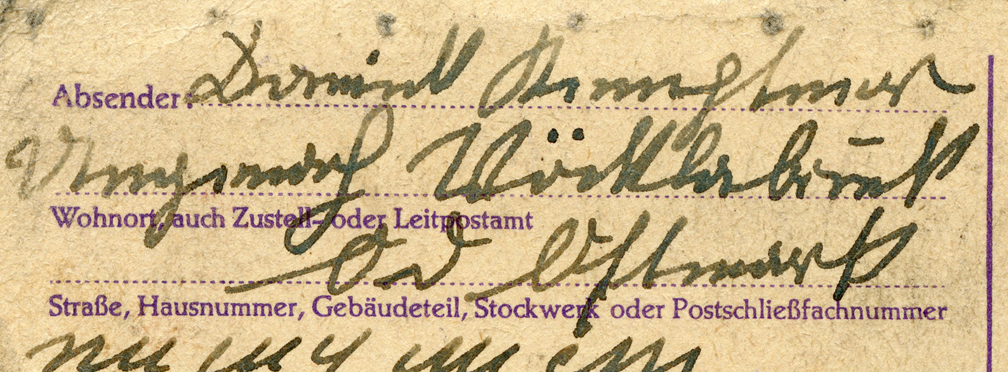 Absender: Dominik
Ungenach Vöcklabruck
Wohnort, auch Zustell- oder Leitpostamt
OD Ostmark
Straße, Hausnummer, Gebäudeteil, Stockwerk oder Postschließfachnummer